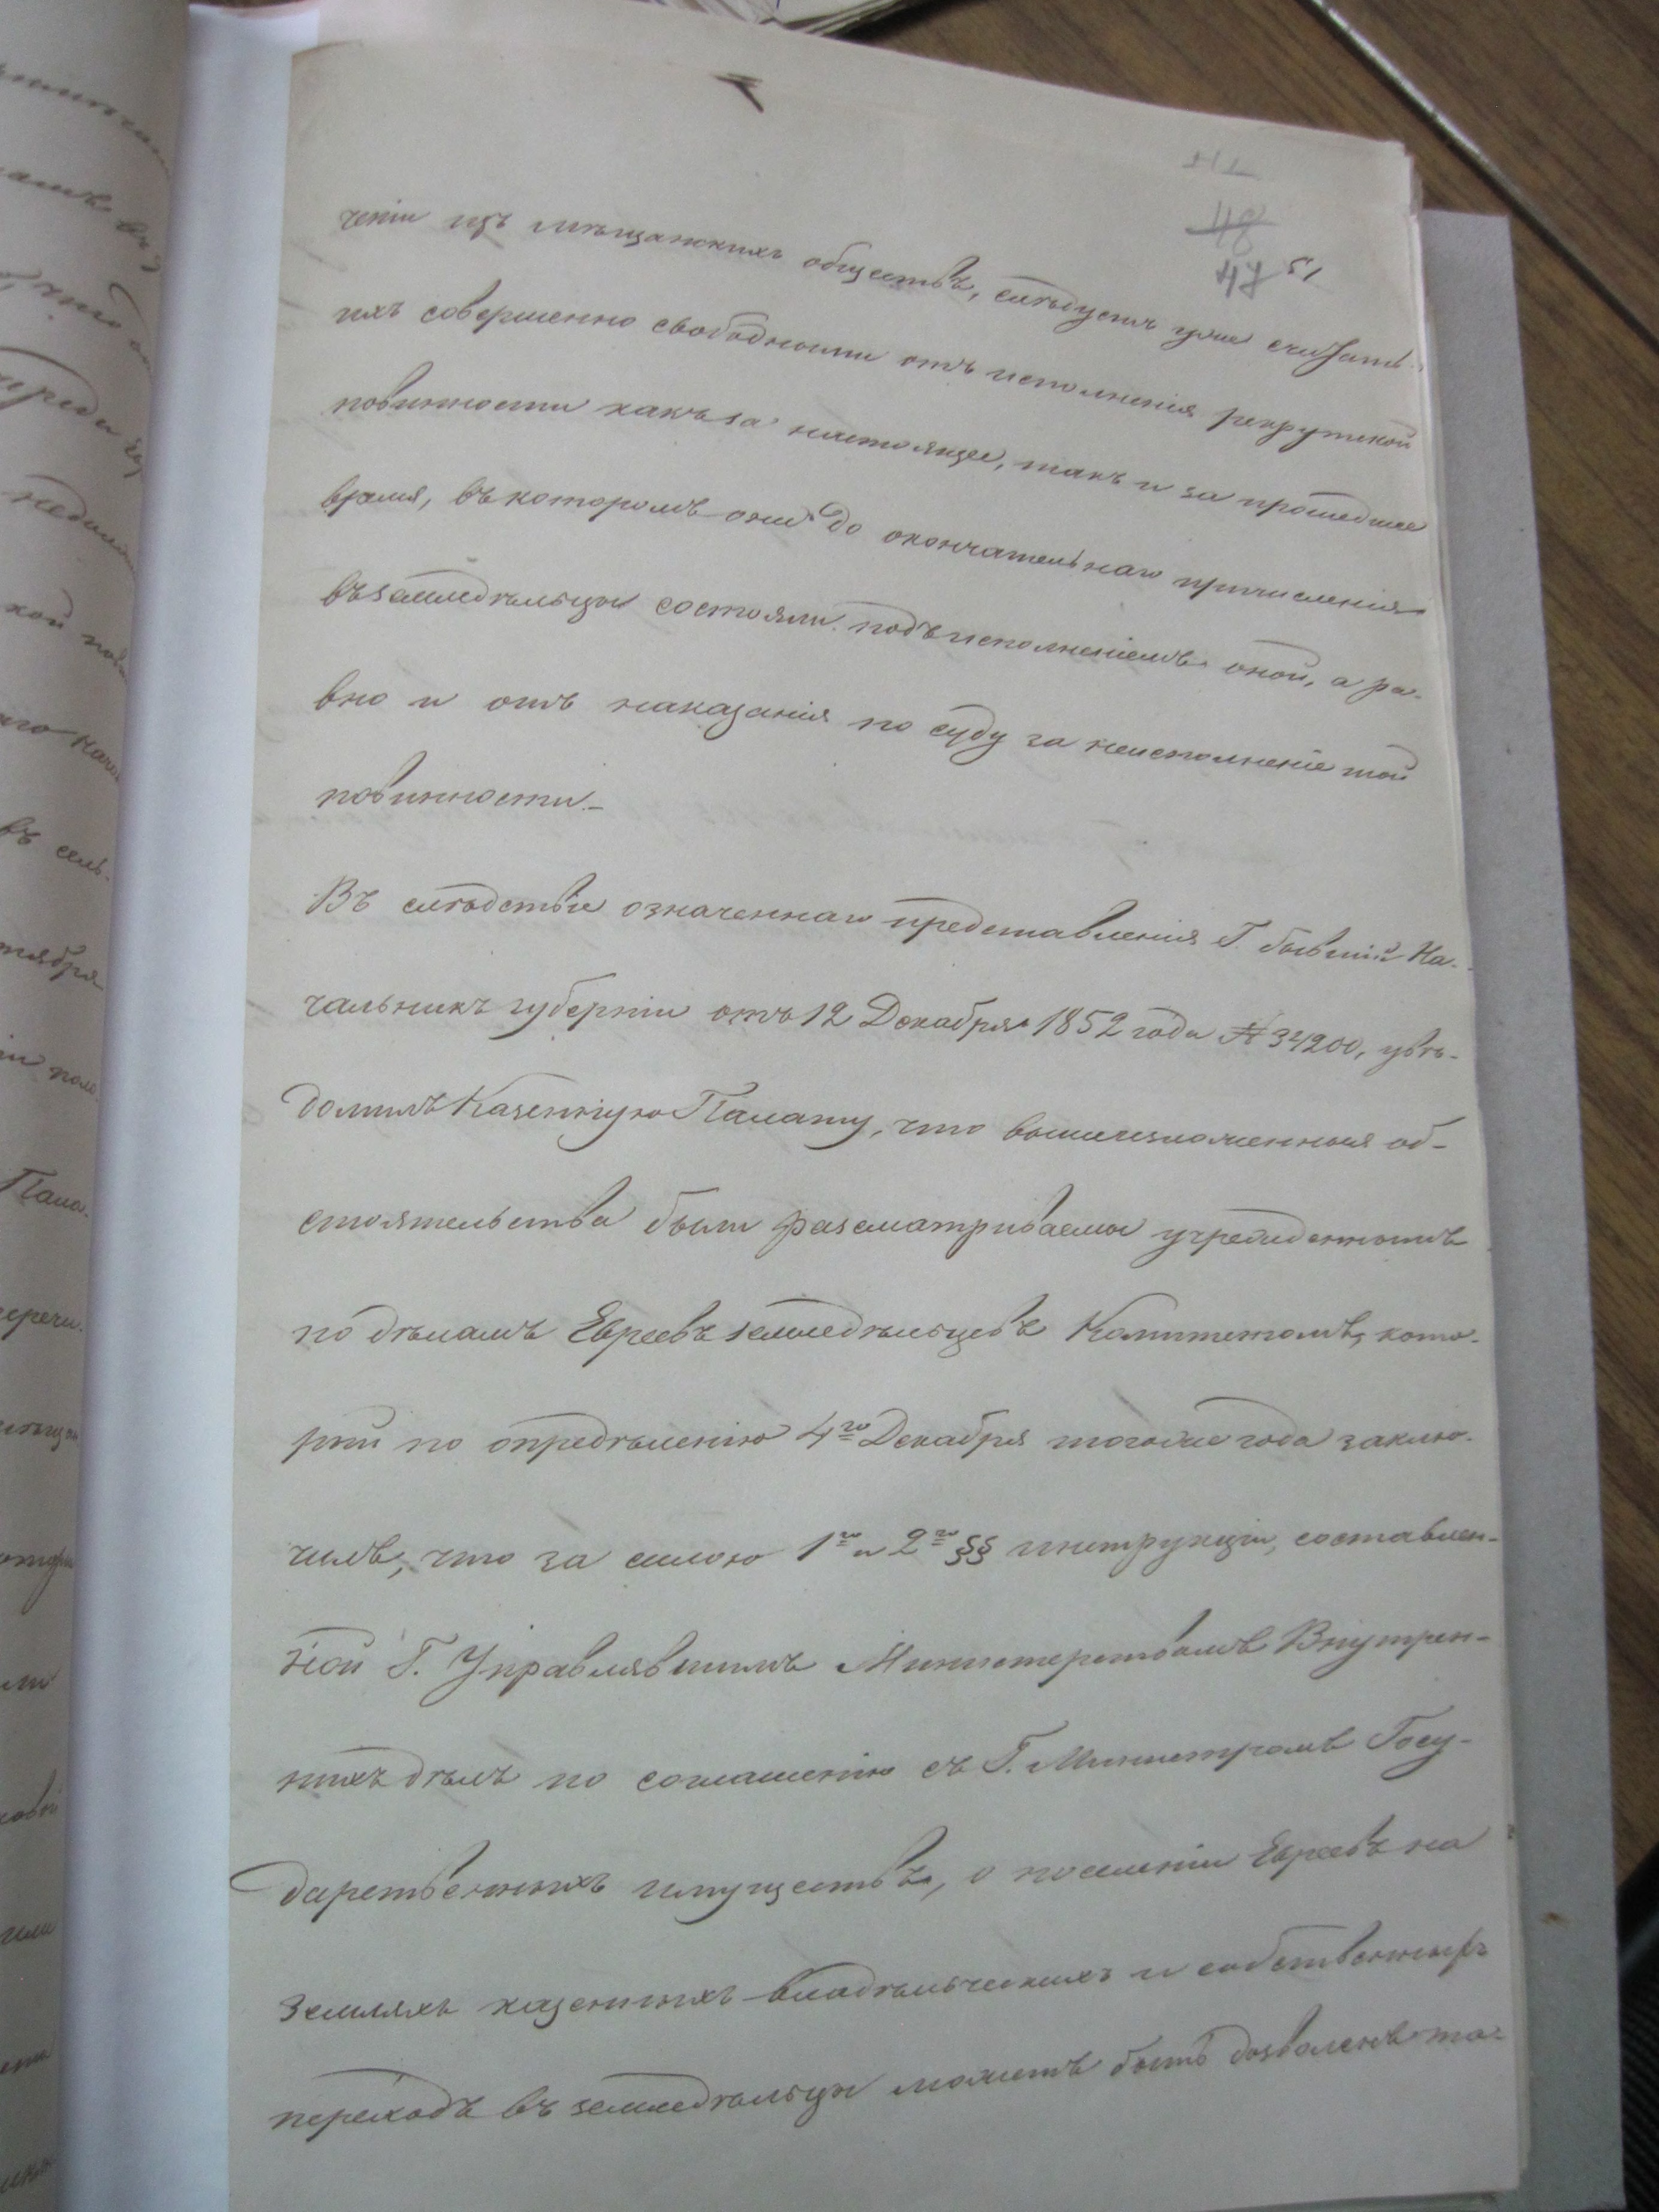 48
47 51
ченіи изъ мѣщанскихъ обществъ, слѣдуетъ уже считать
ихъ совершенно свободными отъ исполненія рекрутской
повинности какъ за настоящее, такъ и за прошедшее
время, въ которомъ они до окончательнаго причисленія
въ земледѣльцы состояли подъ исполненіемъ оной, а ра-
вно и отъ наказанія по суду за неисполненіе той
повинности.
Въ слѣдствіе означеннаго представленія Г. бывшій На-
чальникъ губерніи отъ 12 Декабря 1852 года № 34200, увѣ-
домилъ Казенную Палату, что вышеизложенныя об-
стоятельства были разсматриваемы учрежденнымъ
по дѣламъ Евреевъ земледѣльцевъ Комитетомъ, кото-
рый по опредѣленію 4го Декабря того же года заклю-
чилъ, что за силою 1го и 2го §§ инструкціи, составлен-
ной Г. Управлявшимъ Министерствомъ Внутрен-
нихъ дѣлъ по соглашенію съ Г. Министромъ Госу-
дарственныхъ имуществъ, о поселеніи Евреевъ на
земляхъ казенныхъ владѣльческихъ и собственныхъ
переходъ въ земледѣльцы можетъ быть дозволенъ та-